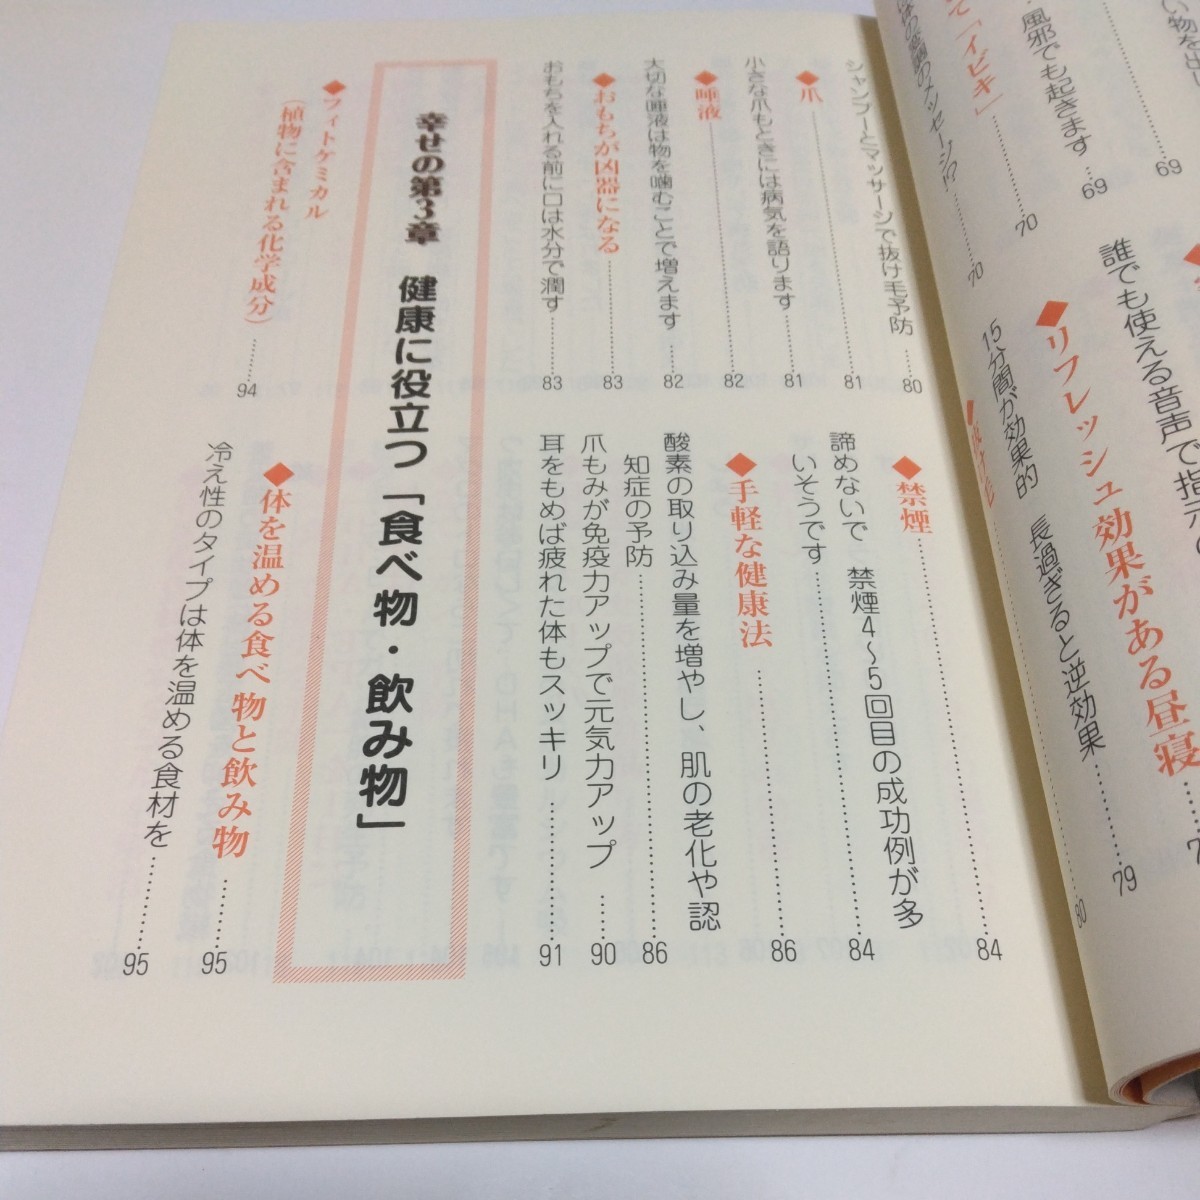 い物を出
69
・風邪でも起きます
69
て「イビキ」
70
のメッセージ!?
70
誰でも使える音声で指示
◆リフレッシュ効果がある昼寝
79
15分間が効果的　長過ぎると逆効果
80
シャンプーとマッサージで抜け毛予防
80
◆爪
81
小さな爪もときには病気を語ります
81
◆唾液
82
大切な唾液は物を噛むことで増えます
82
◆おもちが凶器になる
83
おもちを入れる前に口は水分で潤す
83
◆禁煙
84
諦めないで　禁煙4〜5回目の成功例が多
いそうです
84
◆手軽な健康法
86
酸素の取り込み量を増やし、肌の老化や認
知症の予防
86
爪もみが免疫力アップで元気力アップ
90
耳をもめば疲れた体もスッキリ
91
幸せの第3章　健康に役立つ「食べ物・飲み物」
◆フィトケミカル
(植物に含まれる化学成分)
94
◆体を温める食べ物と飲み物
95
冷え性のタイプは体を温める食材を
95